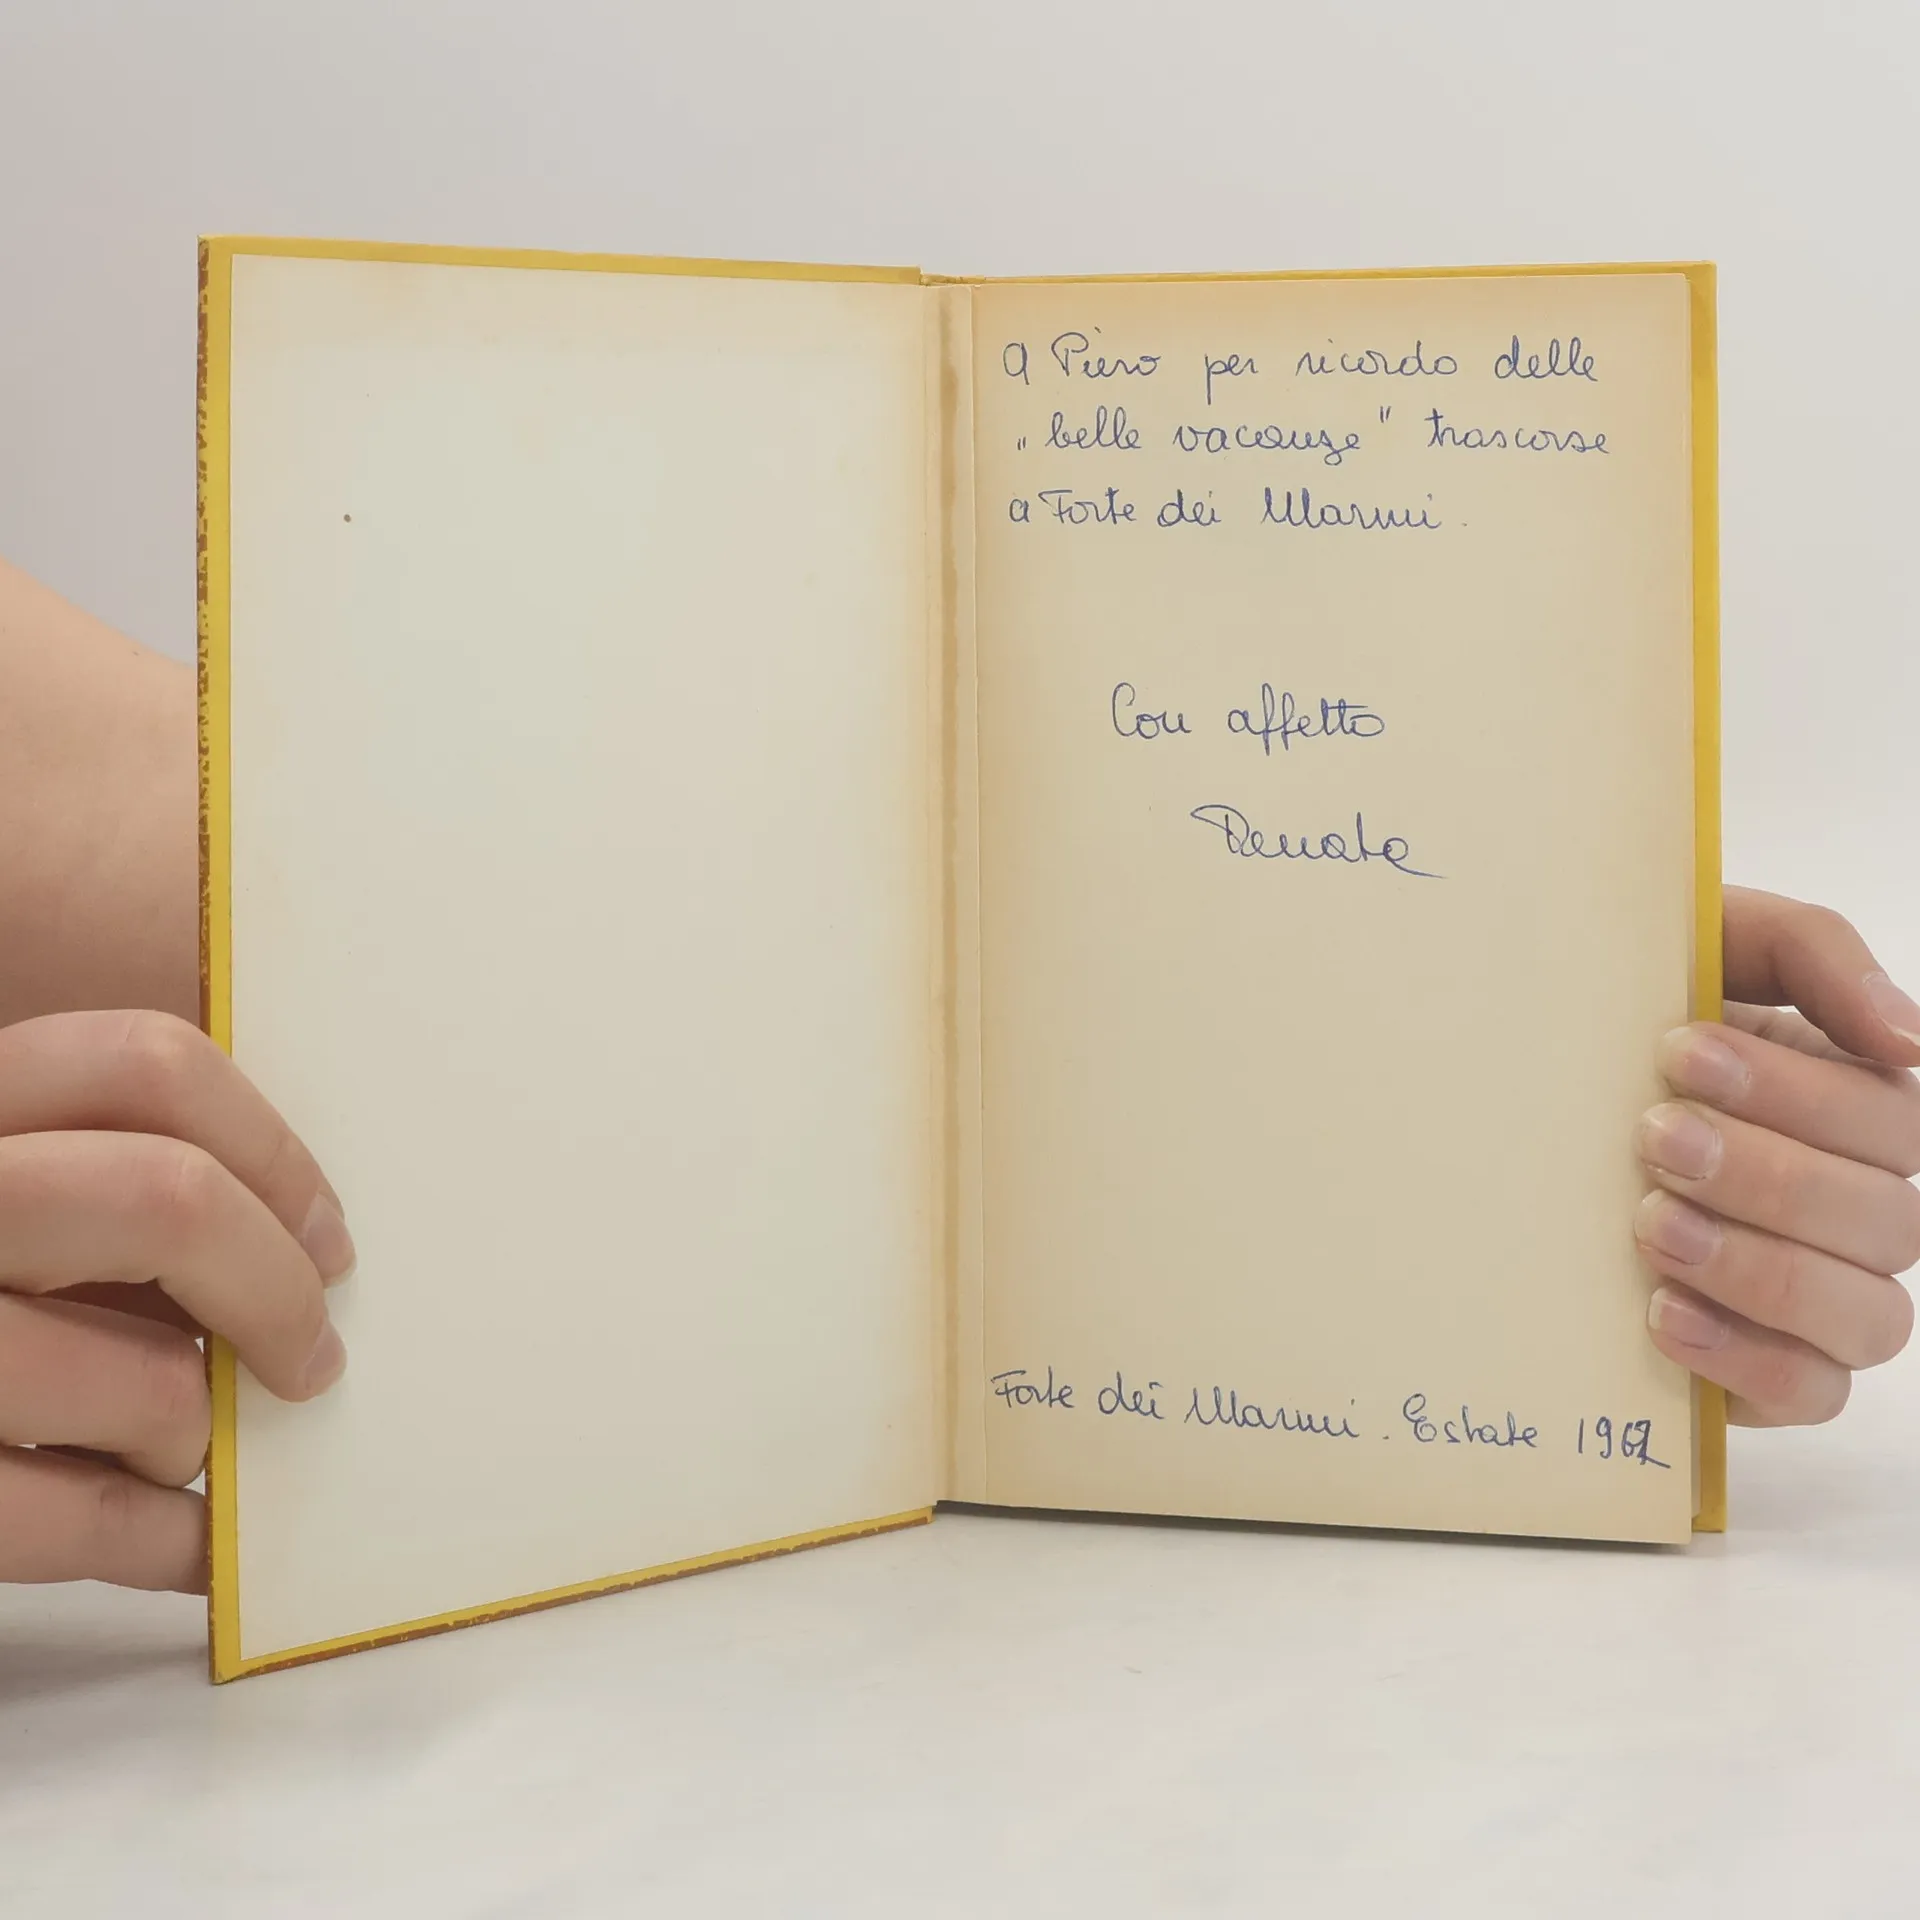 A Piero per ricordo delle
„belle vacanze" trascorse
a Forte dei Marmi.
Con affetto
Renata
Forte dei Marmi. Estate 1962